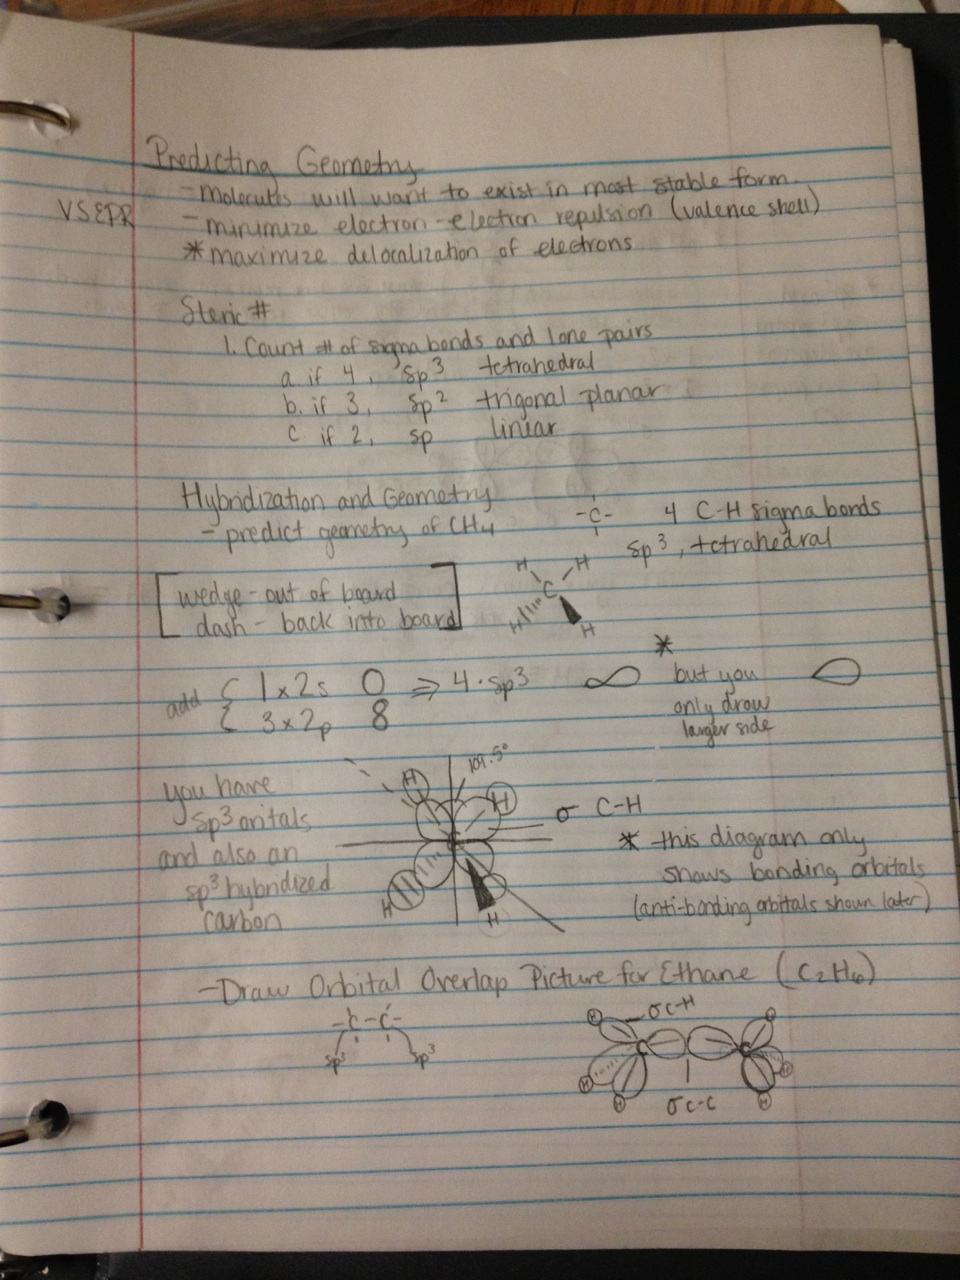 Predicting Geometry
- molecules will want to exist in most stable form.
VSEPR
- minimize electron-electron repulsion (valence shell)
* maximize delocalization of electrons
Steric #
1. Count # of sigma bonds and lone pairs
a. if 4, sp³ tetrahedral
b. if 3, sp² trigonal planar
c if 2, sp linear
Hybridization and Geometry
- predict geometry of CH4
-C-
4 C-H sigma bonds
sp³, tetrahedral
H H
C
H H
[wedge - out of board
dash - back into board]
add { 1 x 2s 0 ⇒ 4 · sp³ ∞
{ 3 x 2p 8
*
but you
only draw
larger side
you have
sp³ oritals
and also an
sp³ hybridized
carbon
109.5°
H H
C
H H
σ C-H
* this diagram only
shows bonding orbitals
(anti-bonding orbitals shown later)
- Draw Orbital Overlap Picture for Ethane (C2H6)
-C-C-
sp³ sp³
σC-H
H H
C C
H H
H H
σC-C